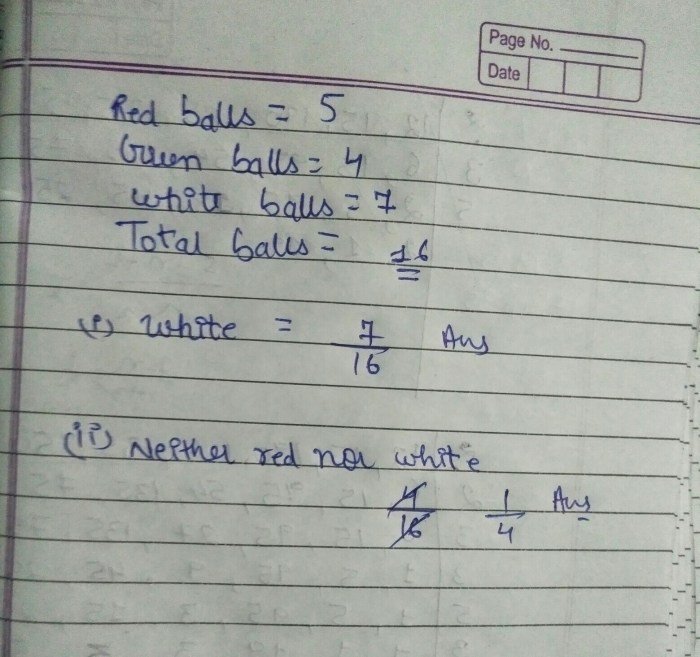 Page No.
Date
Red balls = 5
Green balls = 4
white balls = 7
Total balls = 16
(i) white = 7/16 Ans
(ii) Neither red nor white
4/16 1/4 Ans